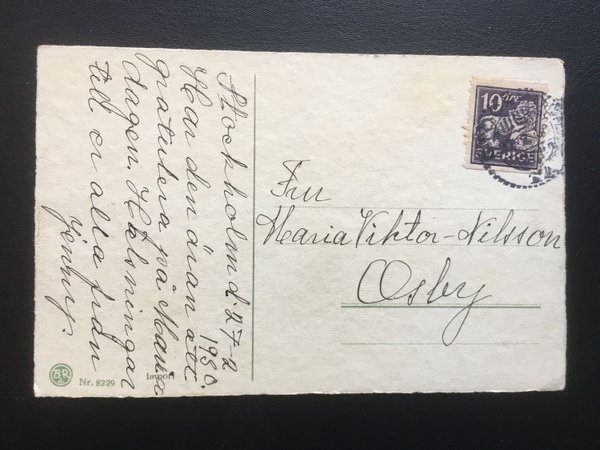 Stockholm d. 27-2
1930.
Har den äran att
gratulera på Maria
dagen. Hälsningar
till er alla från
Jenny.
Fru
Maria Viktor-Nilsson
Osby
10 ÖRE
SVERIGE
BR
Nr. 8229
Import